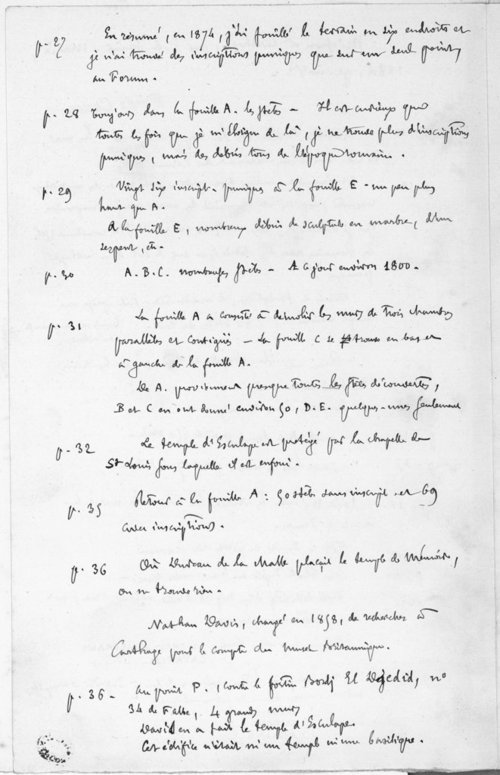 p. 27 En résumé, en 1874, j'ai fouillé le terrain en six endroits et
je n'ai trouvé des inscriptions puniques que sur un seul point,
au Forum.
p. 28 Toujours dans la fouille A. les stèles - Il est curieux que
toutes les fois que je m'éloigne de là, je ne trouve plus d'inscriptions
puniques, mais des débris tous de l'époque romaine.
p. 29 Vingt six inscript. puniques à la fouille E - un peu plus
haut que A.
A la fouille E, nombreux débris de sculpture en marbre, d'un
serpent, etc.
p. 30 A. B. C. nombreuses stèles - A ce jour environ 1800.
p. 31 La fouille A a consisté à démolir les murs de trois chambres
parallèles et contiguës - La fouille C se trouve en bas et
à gauche de la fouille A.
De A. proviennent presque toutes les stèles découvertes,
B et C en ont donné environ 50, D. E. quelques-unes seulement
p. 32 Le temple d'Esculape est protégé par la chapelle de
St Louis sous laquelle il est enfoui.
p. 35 Retour à la fouille A : 50 stèles sans inscript. et 69
avec inscriptions.
p. 36 Où Dureau de la Malle plaçait le temple de Mémoire,
on ne trouve rien.
Nathan Davis, chargé en 1858, de recherches à
Carthage pour le compte du Museet Britannique.
p. 36 - au point P., contre le fortin Bordj El Djedid, no
34 de Falbe, 4 grands murs
Davis en a fait le temple d'Esculape.
Cet édifice n'était ni un temple ni une basilique.